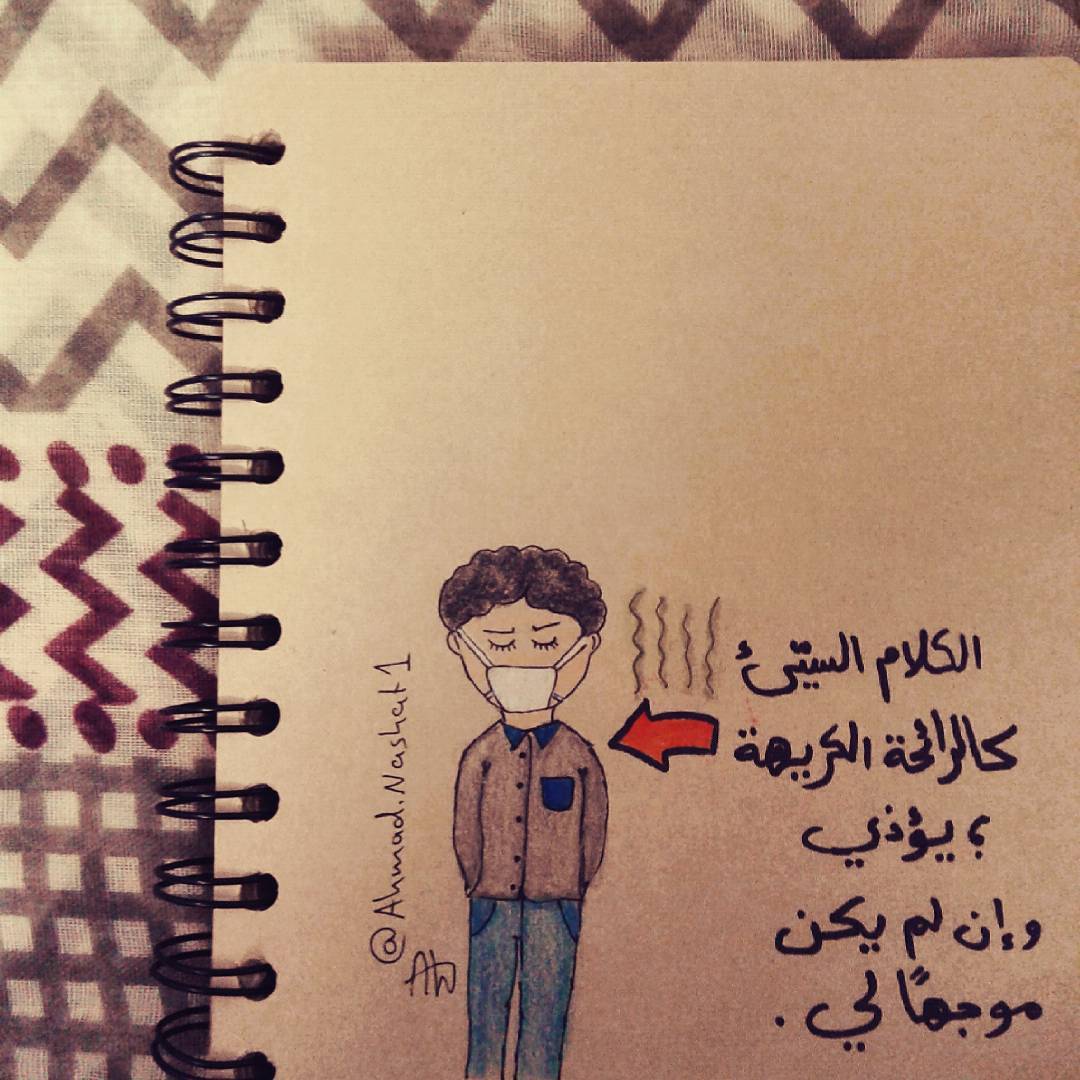 الكلام السيّئ
كالرائحة الكريهة
؛ يؤذي
وإن لم يكن
موجهًا لي .
@Ahmad.Nashat1